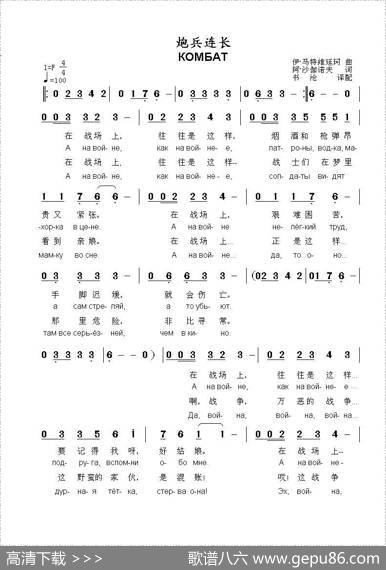 炮兵连长
КОМБАТ
1=F 4/4
♩=100
伊·马特维延珂 曲
阿·沙伽诺夫 词
书沧 译配
0 2 3 4 2 | 0 1 7 6 - | 0 3 3 3 3 | 0 3 0 0
0 0 2 3 - 2 | 3 - - 0 | 0 0 2 2 4 3 | 3 - - 0 | 0 0 3 3 3 2
在战场上, 往往是这样, 烟酒和枪弹昂
А на войне, как на войне, патроны, водка, ма-
在战场上, 往往是这样... 战士们在梦里
А на войне, как на войне... солдаты видят
贵又紧张。 在战场上, 艰难困苦,
-хорка в цене. А на войне нелёгкий труд,
看到亲娘。 在战场上... 正是这样...
мамку во сне. А на войне... да, то оно...
手脚迟缓, 就会伤亡。
а сам стреляй, а то убьют.
那里危险, 非比寻常。
там все серьёзней, чем в кино.
在战场上, 往往是这样...
А на войне, как на войне...
啊, 战争, 万恶的战争
Да, война, война,
要记得我呀, 好姑娘。 在战场上...
подруга, вспомни обо мне. А на войне...
这野蛮的家伙, 是混账! 哎! 这战争
дурная тётка, стерва она! Эх, война,
高清下载 >>>
歌谱八六 www.gepu86.com